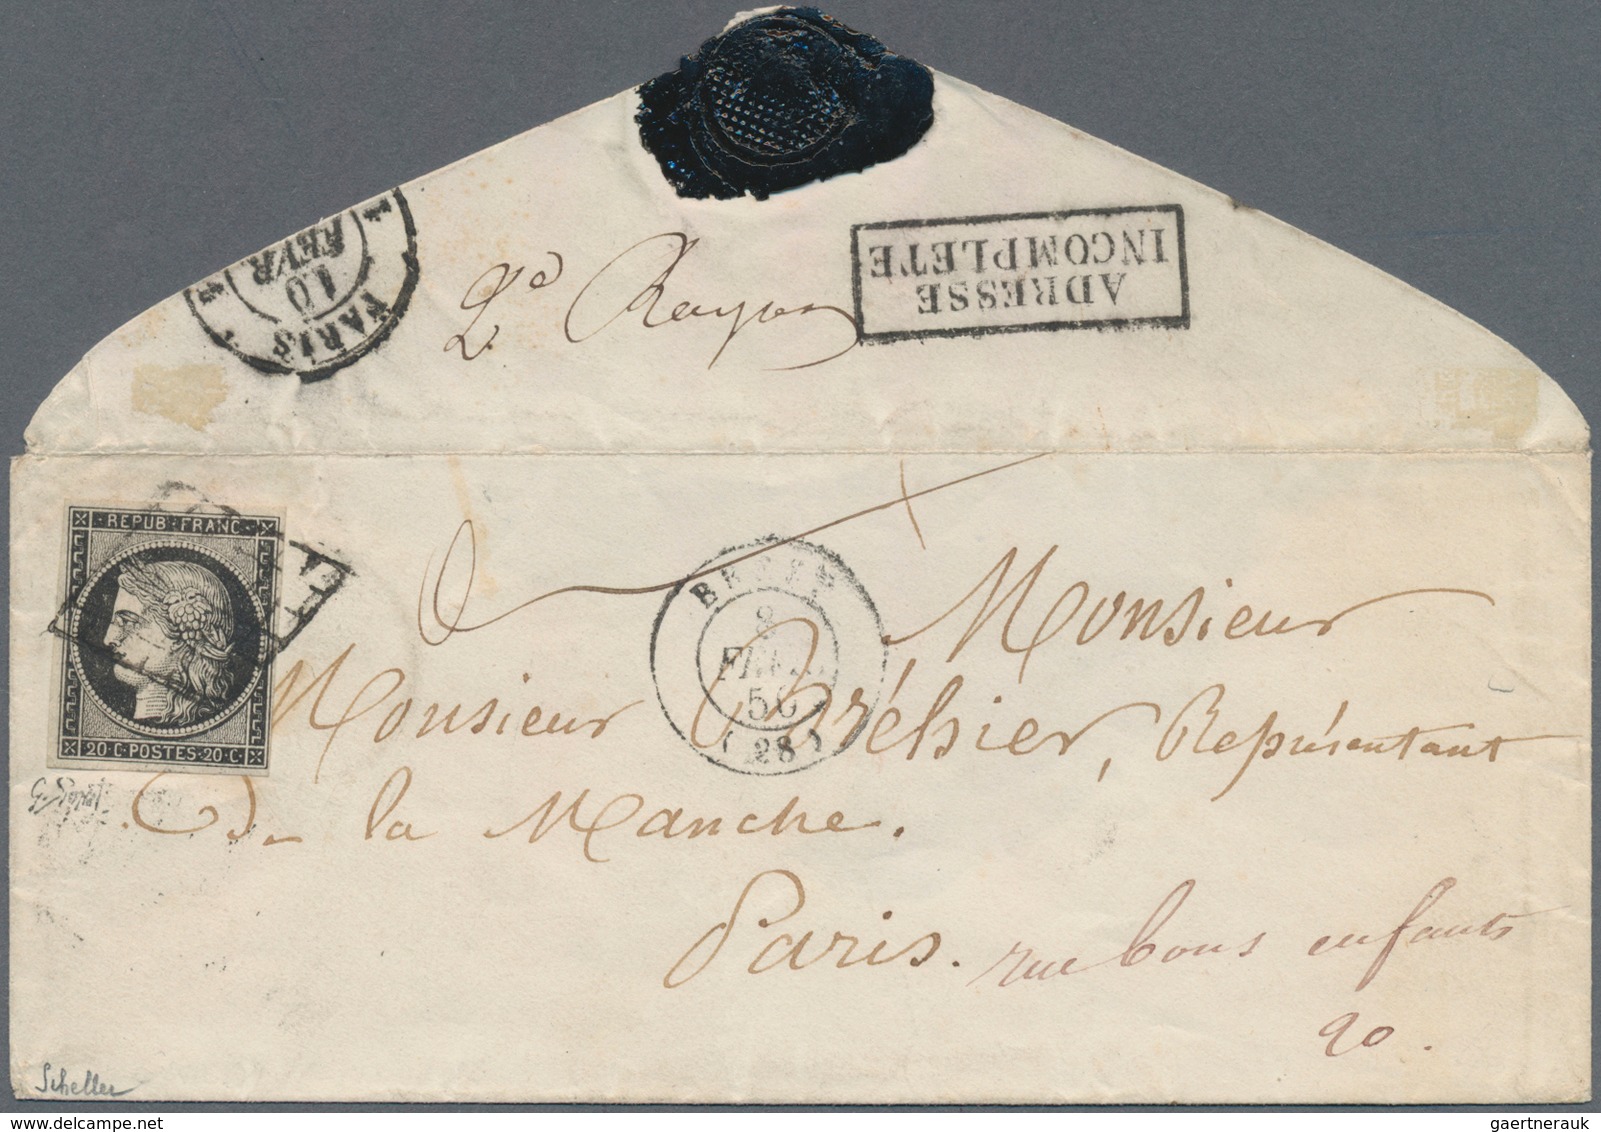 PARIS
10
FEVR
2d Rayon
ADRESSE
INCOMPLETE
REPUB FRANC
20 C POSTES 20 C
8
50
(28)
Monsieur
Monsieur Bréhier, Représentant
de la Manche.
Paris. rue bons enfants
20.
Scheller
gaertnerauk